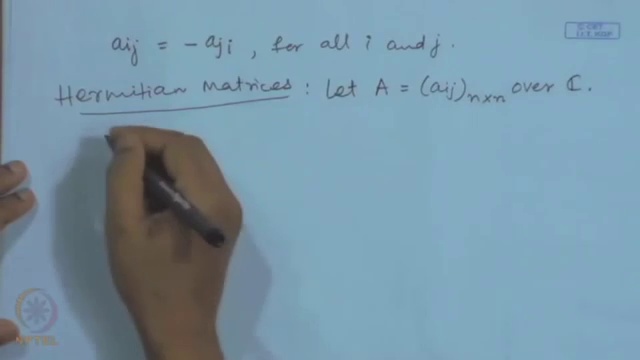 aij = - aji , for all i and j.
Hermitian Matrices : Let A = (aij)n×n over ℂ.
NPTEL